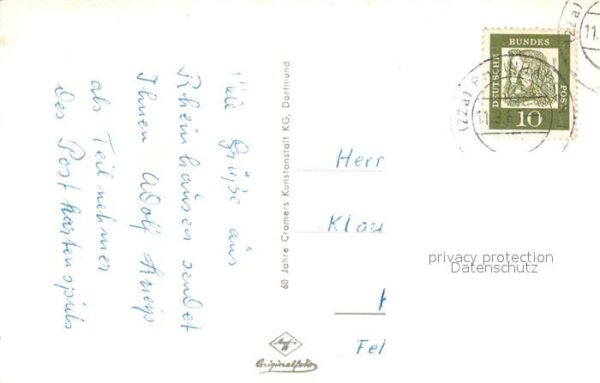 Viele Grüße aus
Rheinhausen sendet
Ihnen Adolf
als Teilnehmer
des Postkartenspiels
60 Jahre Cramers Kunstanstalt KG, Dortmund
Agfa
Originalfoto
DEUTSCHE
BUNDES
POST
10
(22a)
11.
(22a)
11.3.6
Herr
Klau
Fel
privacy protection
Datenschutz